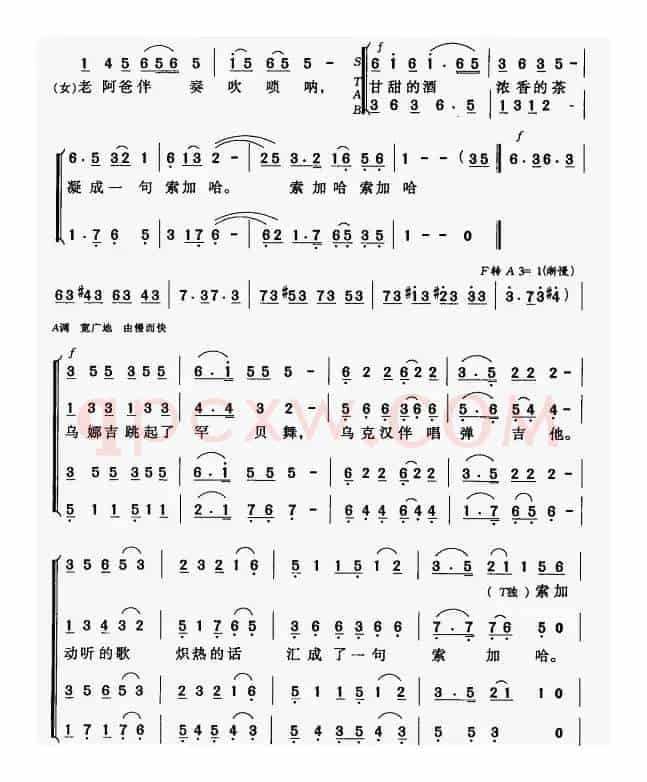 1 4 5 6 5 6 5 | i 5 6 5 | 6 i 6 i . 6 5 | 3 6 3 5 -
(女)老 阿爸伴 奏 吹 唢 呐, S T A B f 甘甜的酒 浓香的茶
3 6 3 6 . 5 | 1 3 1 2 -
6 . 5 3 2 1 | 6 1 3 2 - | 2 5 3 . 2 1 6 5 6 | 1 - - (3 5 ‖ f 6 . 3 6 . 3 |
凝成一 句 索加 哈。 索加哈 索加 哈
1 . 7 6 5 | 3 1 7 6 - | 6 2 1 . 7 6 5 3 5 | 1 - - 0 ‖
F转 A 3=1(渐慢)
6 3 #4 3 6 3 #4 3 | 7 . 3 7 . 3 | 7 3 #5 3 7 3 5 3 | 7 3 #1 3 #2 3 3 3 | 3 . 7 3 #4 )
A调 宽广地 由慢而快
f
3 5 5 3 5 5 | 6 . i 5 5 5 - | 6 2 2 6 2 2 | 3 . 5 2 2 2 -
1 3 3 1 3 3 | 4 . 4 3 2 - | 5 6 6 3 6 6 | 5 . 6 5 4 -
乌娜吉跳起了 罕 贝 舞, 乌克汉伴 唱 弹 吉 他。
3 5 5 3 5 5 | 6 . i 5 5 5 - | 6 2 2 6 2 2 | 3 . 5 2 2 2 -
5 1 1 5 1 1 | 2 . 1 7 6 7 - | 6 4 4 6 4 4 | 1 . 7 6 5 -
3 5 6 5 3 | 2 3 2 1 6 | 5 1 1 5 1 2 | 3 . 5 2 1 1 5 6
(T独) 索加
1 3 4 3 2 | 5 1 7 6 5 | 3 6 6 3 6 6 | 7 . 7 7 6 5 0
动听的歌 炽热的话 汇成了一句 索 加 哈。
3 5 6 5 3 | 2 3 2 1 6 | 5 1 1 5 1 2 | 3 . 5 2 1 1 0
1 7 1 7 6 | 5 4 5 4 3 | 5 4 3 5 4 | 5 5 3 0
qpcxw.COM